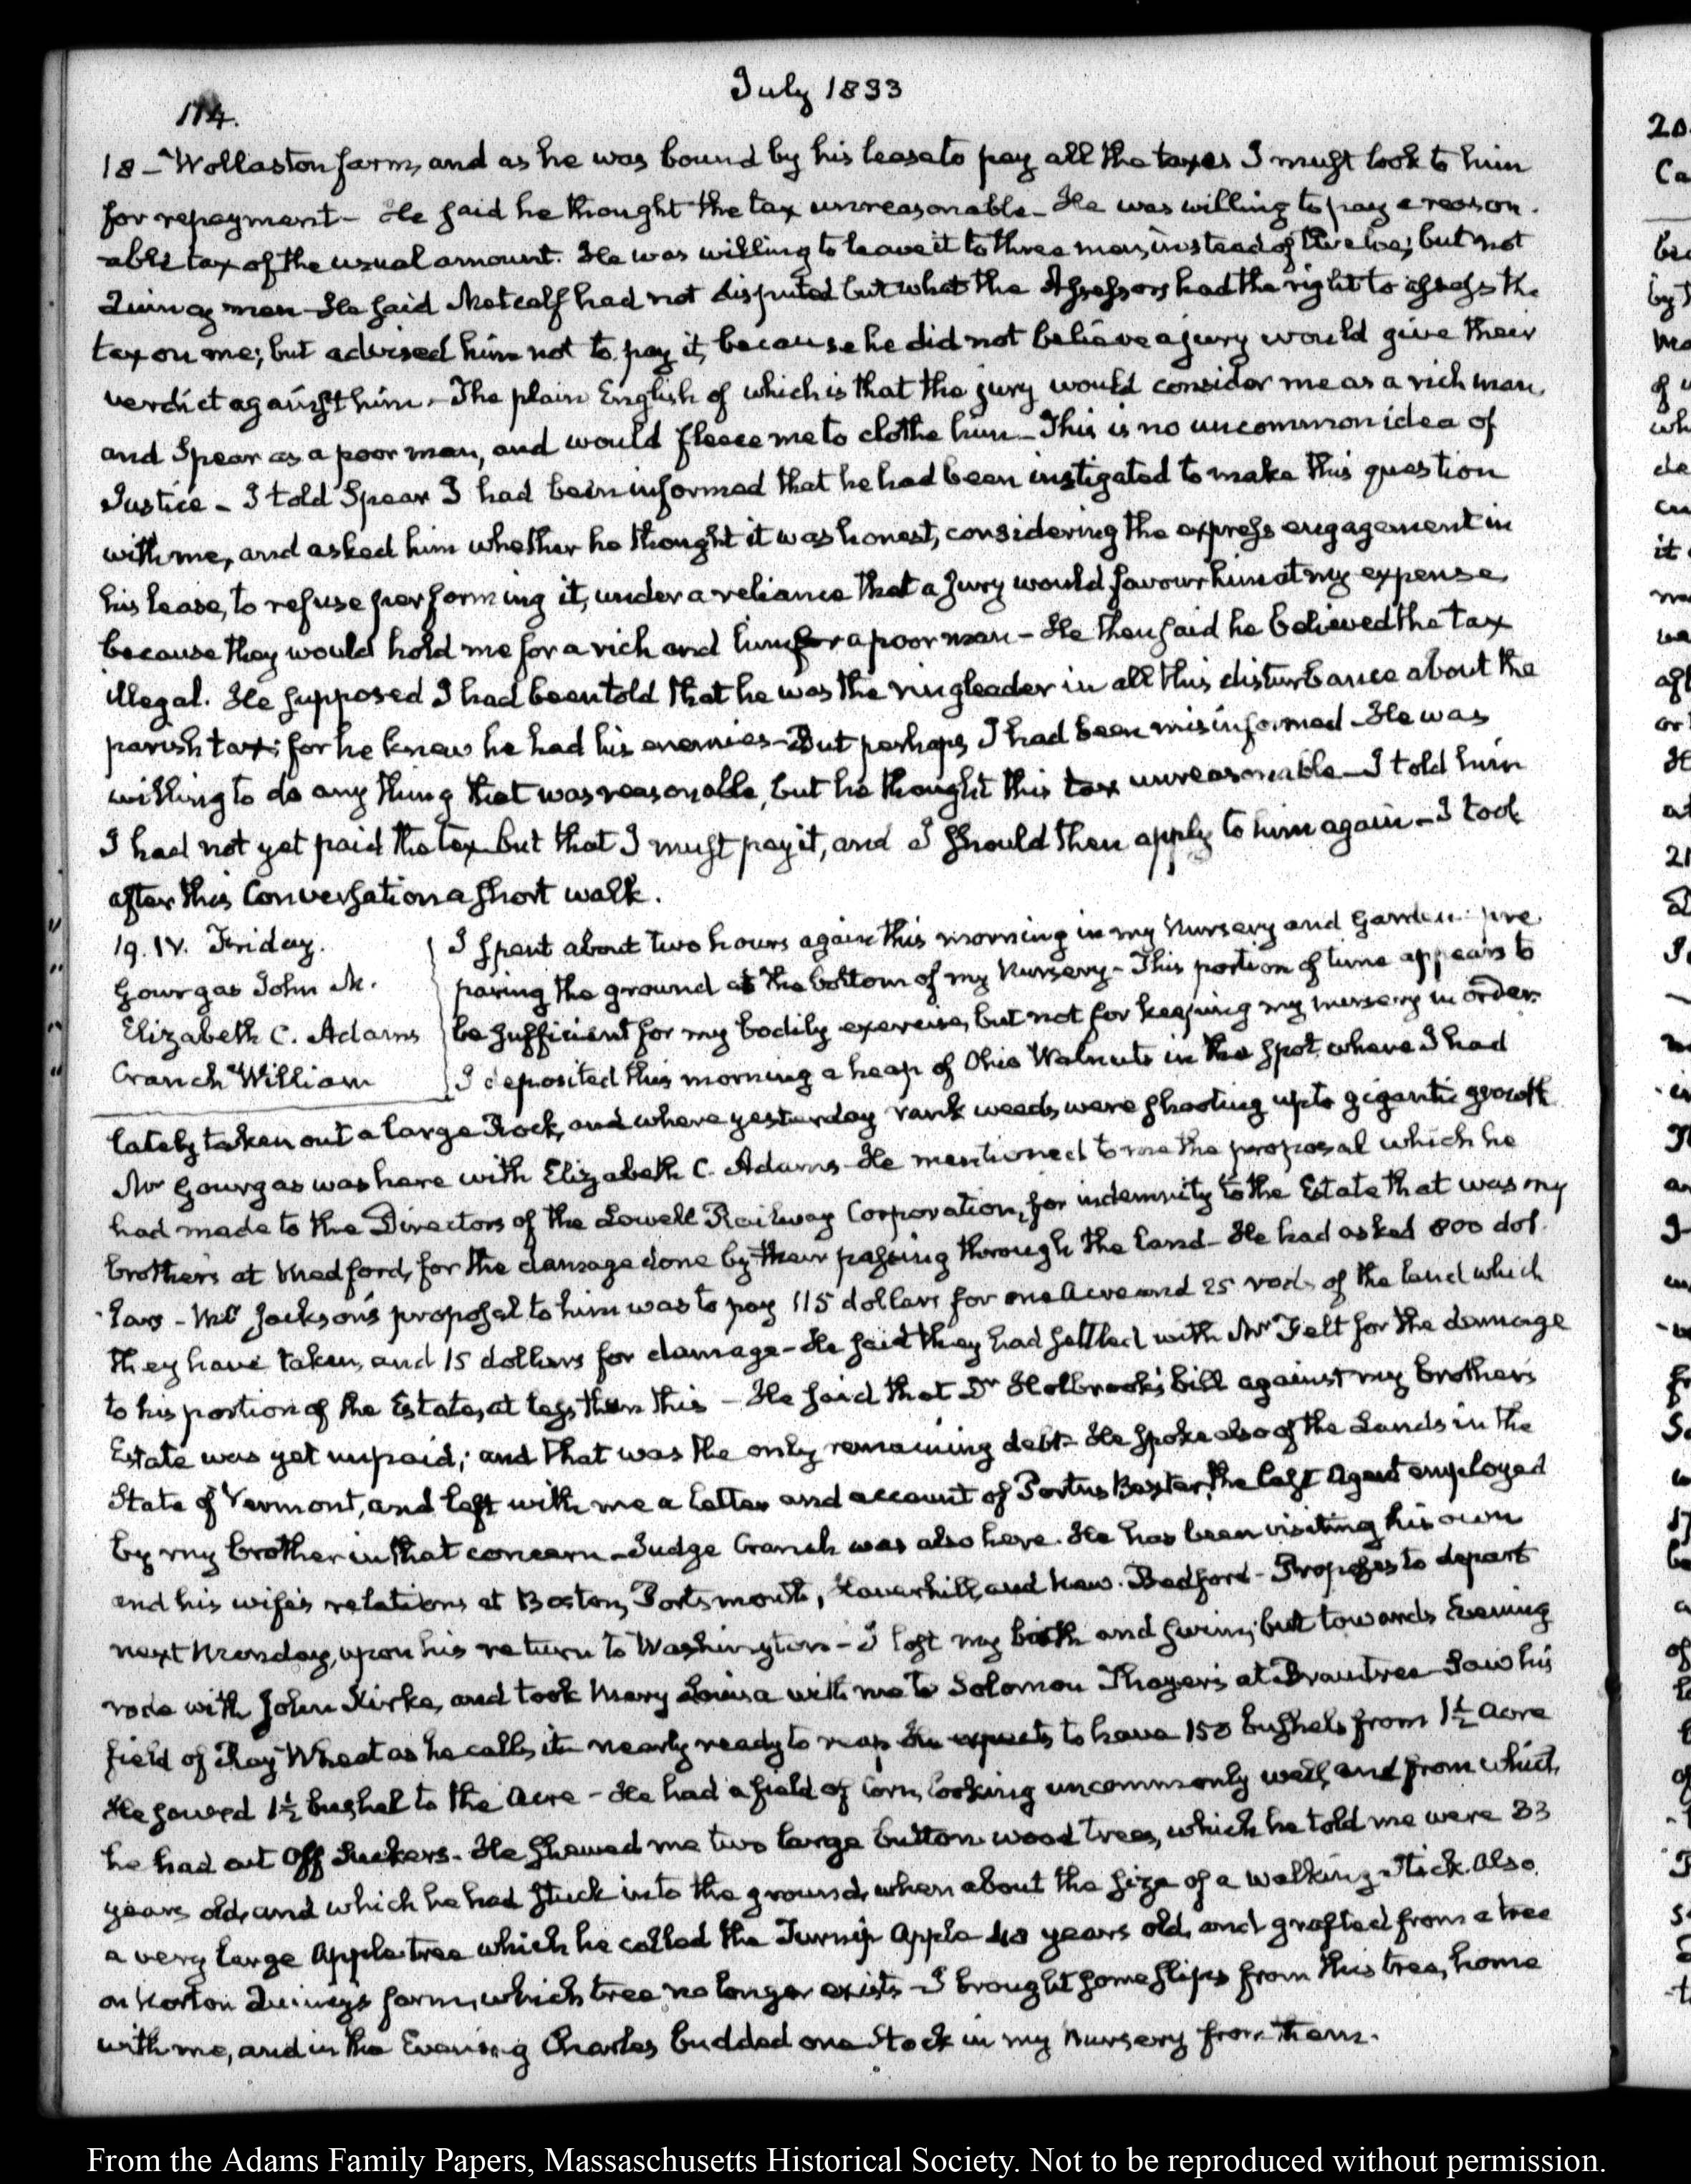 July 1833
114.
18 - Wollaston farm, and as he was bound by his lease to pay all the taxes I must look to him
for repayment - He said he thought the tax unreasonable - He was willing to pay a reason-
able tax of the usual amount. He was willing to leave it to three men, instead of twelve; but not
Quincy men - He said Metcalf had not disputed but what the Assessors had the right to assess the
tax on me; but advised him not to pay it, because he did not believe a jury would give their
verdict against him. - The plain English of which is that the jury would consider me as a rich man,
and Spear as a poor man, and would fleece me to clothe him - This is no uncommon idea of
Justice - I told Spear I had been informed that he had been instigated to make this question
with me, and asked him whether he thought it was honest, considering the express engagement in
his lease, to refuse performing it, under a reliance that a Jury would favour him at my expense,
because they would hold me for a rich and him for a poor man - He then said he believed the tax
illegal. He supposed I had been told that he was the ringleader in all this disturbance about the
parish tax; for he knew he had his enemies - But perhaps I had been misinformed - He was
willing to do any thing that was reasonable, but he thought this tax unreasonable - I told him
I had not yet paid the tax but that I must pay it, and I should then apply to him again - I took
after this Conversation a short walk.
19. IV. Friday.
Gourgas John M.
Elizabeth C. Adams
Cranch William
I spent about two hours again this morning in my Nursery and Garden pre
paring the ground at the bottom of my Nursery - This portion of time appears to
be sufficient for my bodily exercise, but not for keeping my nursery in order.
I deposited this morning a heap of Ohio Walnuts in the spot where I had
lately taken out a large Rock, and where yesterday rank weeds were shooting up to gigantic growth
Mr Gourgas was here with Elizabeth C. Adams - He mentioned to me the proposal which he
had made to the Directors of the Lowell Railway Corporation, for indemnity to the Estate that was my
brother's at Medford, for the damage done by their passing through the land - He had asked 800 dol-
lars - Mr Jackson's proposal to him was to pay 115 dollars for one Acre and 25 rods of the land which
they have taken, and 15 dollars for damage - He said they had settled with Mr Felt for the damage
to his portion of the Estate, at less than this - He said that Dr Holbrook's bill against my brother's
Estate was yet unpaid; and that was the only remaining debt - He spoke also of the Lands in the
State of Vermont, and left with me a letter and account of Portus Baxter, the last Agent employed
by my brother in that concern - Judge Cranch was also here. He has been visiting his own
and his wife's relations at Boston, Portsmouth, Haverhill, and New-Bedford - Proposes to depart
next Monday, upon his return to Washington - I lost my bath and swim; but towards Evening
rode with John Kirke, and took Mary Louisa with me to Solomon Thayer's at Braintree - Saw his
field of Ray Wheat as he calls it nearly ready to reap He expects to have 150 bushels from 1½ acre
He sowed 1½ bushel to the acre - He had a field of corn, looking uncommonly well, and from which,
he had cut off Suckers. He shewed me two large button wood trees, which he told me were 33
years old, and which he had stuck into the ground, when about the size of a walking-stick. Also
a very large Apple tree which he called the Turnip Apple 40 years old, and grafted from a tree
on Norton Quincy's farm, which tree no longer exists - I brought some slips from this tree, home
with me, and in the Evening Charles budded one Stock in my Nursery from them.
From the Adams Family Papers, Massachusetts Historical Society. Not to be reproduced without permission.